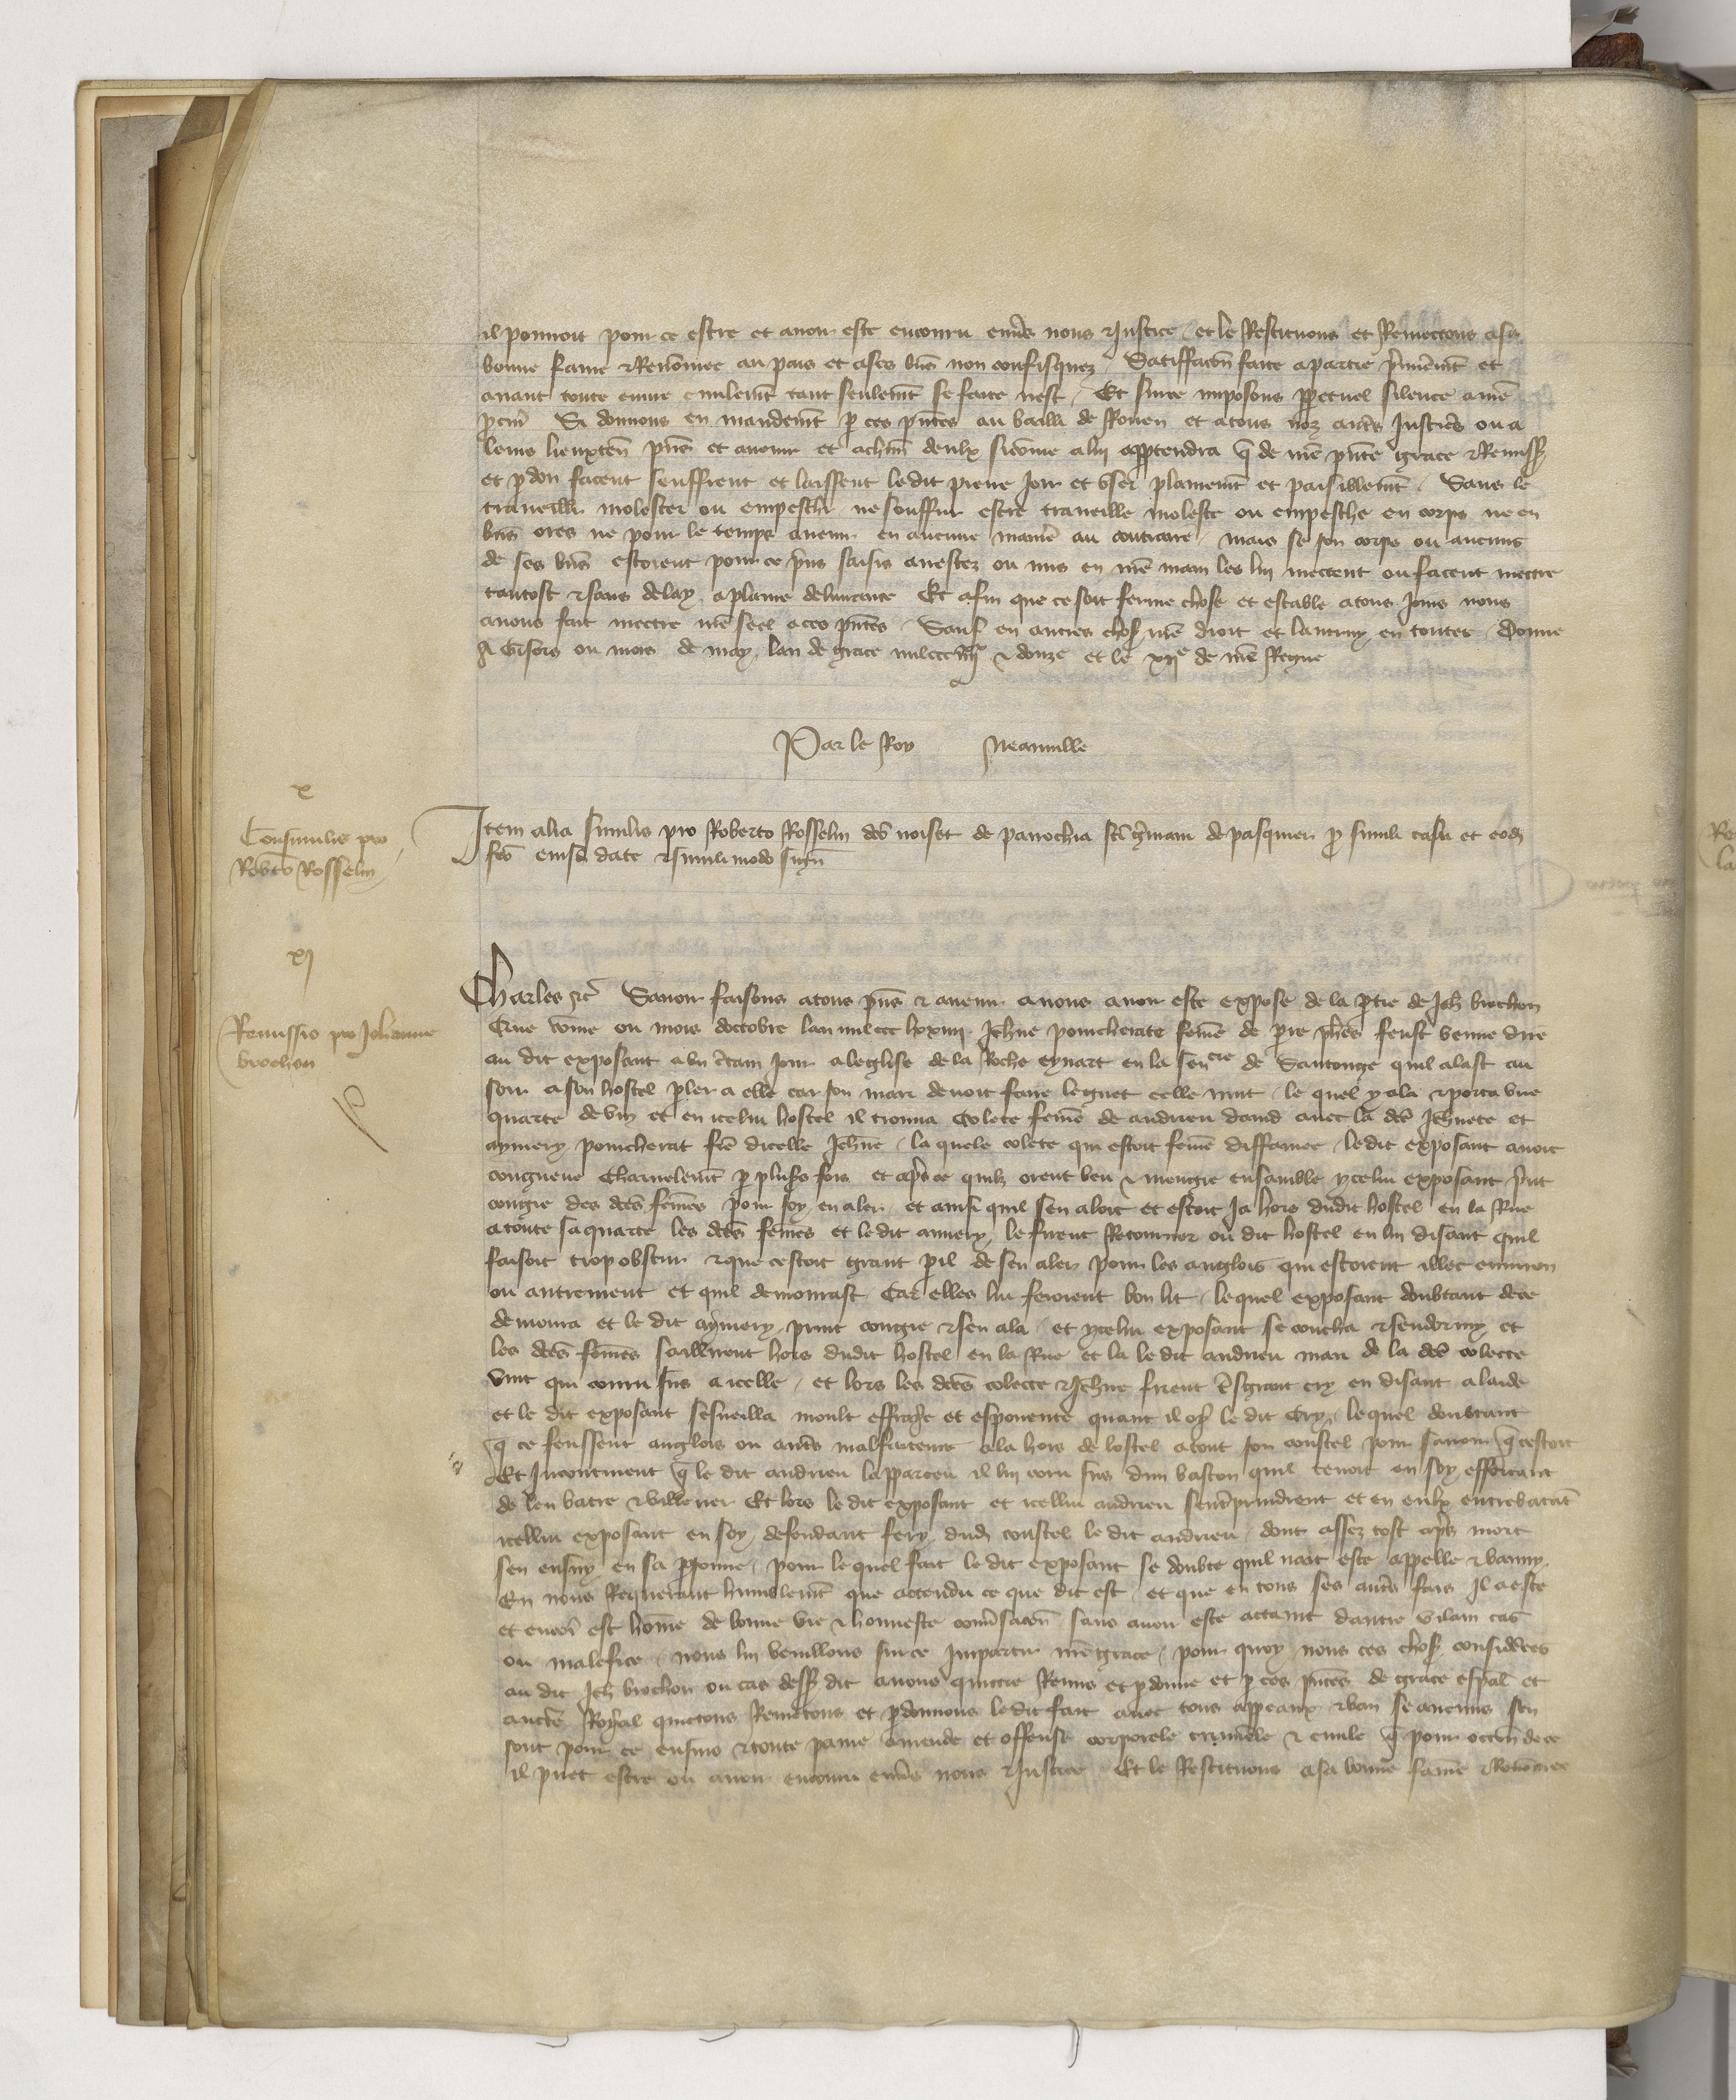 il pourroit pour ce estre et avoir este encouru envs nous & Justice et le Restituons et Remectons a sa
bonne fame & Renōmee au pais et a ses biēs non confisquez Satiffacōn faite a partie prmieremt et
avant toute euvre civilemt tant seulemt se faite nest Et surce imposons ppetuel silence a nrē
pcur Si donnons en mandemt p ces pntes au bailli de Rouen et a tous noz autrs Justicrs ou a
leurs lieuxten pns et avenir et a chun deulx si cōme a lui apptendra q de nrē pnte grace & Remiss
et pdon facent seuffrent et laissent ledit pierre Joir et user plainemt et paisiblemt Sans le
traveillr molester ou empeschr ne souffrir estre traveille moleste ou empesche en corps ne en
biēs ores ne pour le temps avenir en aucune maniē au contraire mais se son corps ou aucuns
de ses biēs estoient pour ce prins saisis arrestez ou mis en nrē main les lui mectent ou facent mectre
tantost & sans delay a plaine delivrance Et afin que ce soit ferme chose et estable a tous Jours nous
avons fait mectre nrē seel a ces pntes Sauf en autres chos nrē droit et lautruy en toutes Donne
A Gisors ou mois de may lan de grace mil ccc iiijxx & douze et le xije de nrē Regne
Par le Roy Neauville
x
Consimilis pro
Robto Rosselin
Item alia similis pro Roberto Rosselin dco noiset de parrochia sci grmani de pasquier p simili casu et eod
fco eiusd date & simili modo sign
xj
Remissio pro Johanne
brochon
Charles &c Savoir faisons a tous pns & avenir a nous avoir este expose de la ptie de Jeh brochon
Que cōme ou mois doctobre lan mil ccc lxxiiij Jehne poincherate femē de pre feust venue dire
au dit exposant a un crtain Jour a leglise de la Roche eynart en la senere de Santonge quil alast au
soir a son hostel pler a elle car son mari devoit faire le guet celle nuit le quel y ala & porta une
quarte de vin et en icelui hostel il trouva Colete femē de andrieu david avec la dcē Jehnete et
aymery poincherat frē dicelle Jehne la quele colete qui estoit femē diffamee ledit exposant avoit
congneue charnelemt p plussrs fois et aprs ce quilz orent beu & mengie ensamble ycelui exposant prist
congie des dcēs femēs pour soy en aler et ainsi quil sen aloit et estoit Ja hors dudit hostel en la Rue
a toute sa quarte les dcēs femēs et le dit aimery le firent Retourner ou dit hostel en lui disant quil
faisoit trop obscur & que cestoit grant pil de sen aler pour les anglois qui estoient illec environ
ou autrement et quil demourast Car elles lui feroient bon lit lequel exposant doubtant de ce
demoura et le dit aymery print congie & sen ala et ycelui exposant se coucha & sendormy et
les dcēs femēs saillirent hors dudit hostel en la Rue et la le dit andrieu mari de la dcē colecte
vint qui couru sus a icelle et lors les dcēs colecte & Jehne firent trsgrant cry en disant a laide
et le dit exposant sesveilla moult effraye et espouente quant il oy le dit cry lequel doubtant
q ce feussent anglois ou autrs malfaiteurs ala hors de lostel a tout son coustel pour savoir q cestoit
Et Incontinent q le dit andrieu lapparceu il lui couru sus dun baston quil tenoit en soy efforcant
de len batre & villener Et lors le dit exposant et icellui andrieu sentrprindrent et en eulx entrebatāt
icellui exposant en soy defendant fery dud coustel le dit andrieu dont assez tost aprs mort
sen ensuy en sa psonne pour lequel fait le dit exposant se doubte quil nait este appelle & banny
En nous Requerant humblemt que actendu ce que dit est et que en tous ses autrs fais Il a este
et encore est homē de bonne vie & honneste convrsacōn sans avoir este actaint dautre vilain cas
ou malefice nous lui veuillons sur ce Impartir nrē grace pour quoy nous ces chos considērees
au dit Jeh brochon ou cas dess dit avons quictie Remis et pdonne et p ces pntes de grace espal et
auctē Royal quictons Remectons et pdonnons ledit fait avec tous appeaux & ban se aucuns sen
sont pour ce ensuis & toute paine amende et offense corporele criminēle & civile q pour occōn de ce
il puet estre ou avoir encouru envs nous & Justice Et le Restituons a sa bonne fame & Renōmee